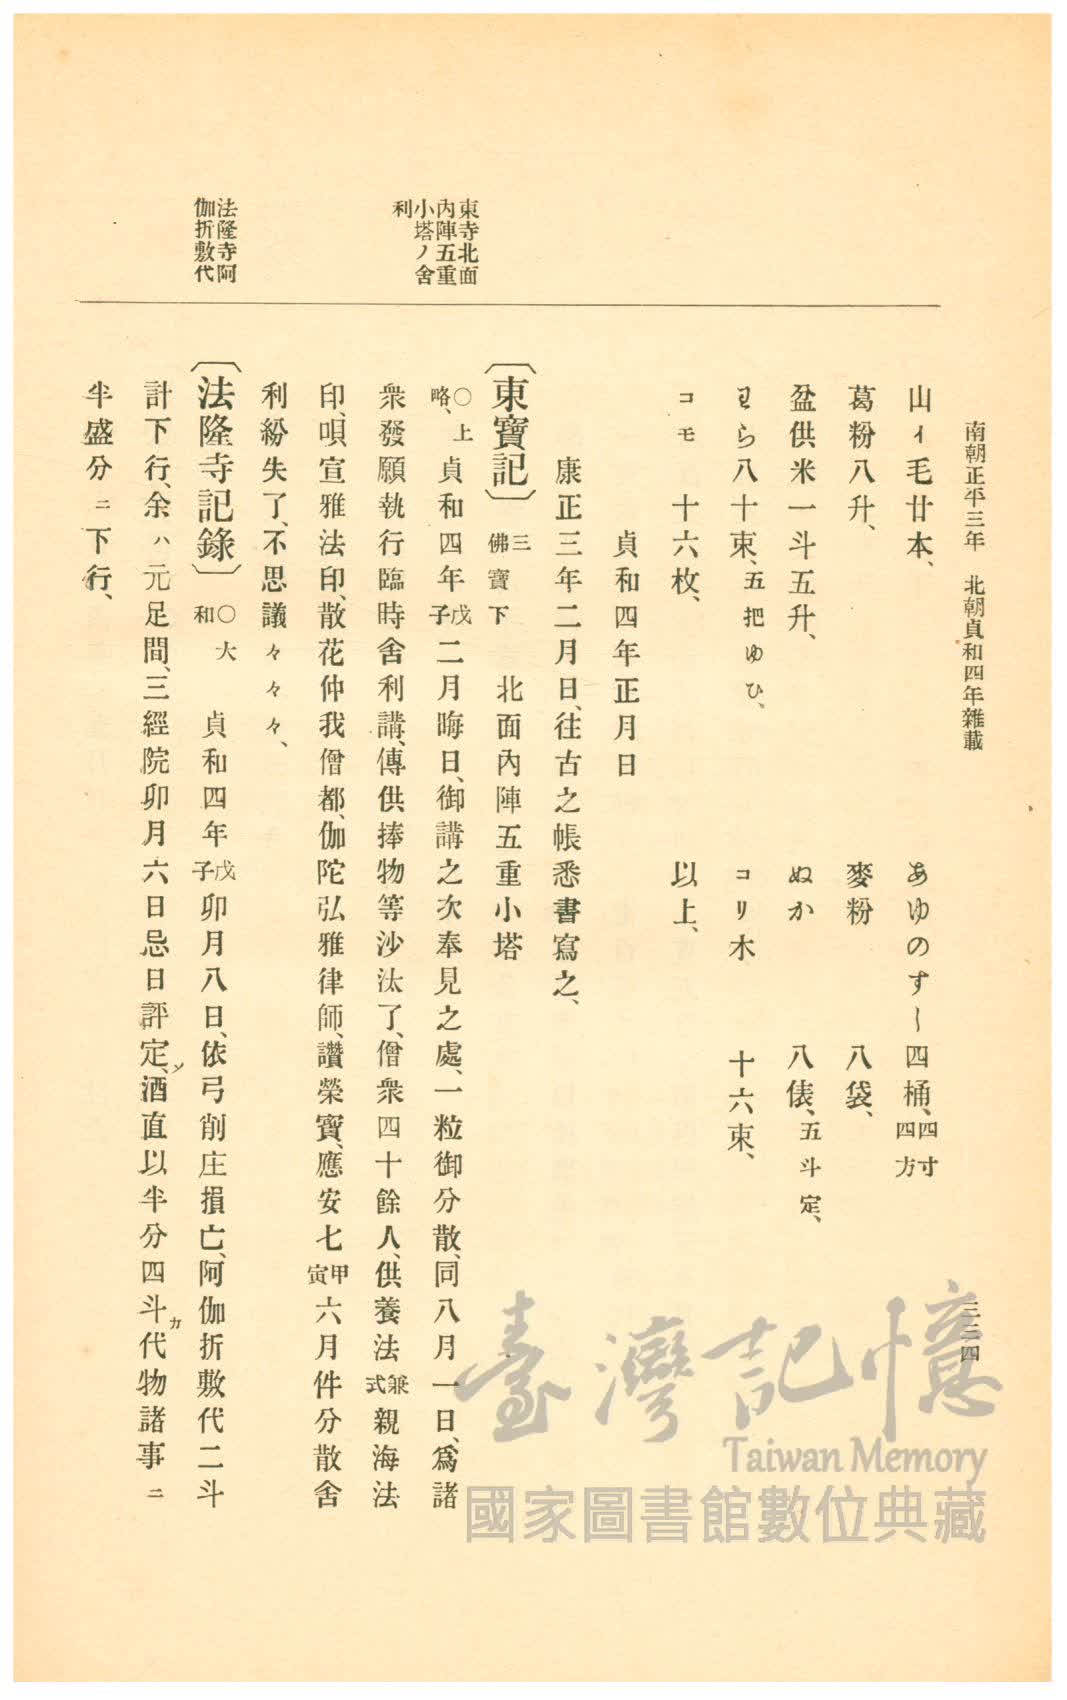 南朝正平三年　北朝貞和四年雜載
三三四
山ィ毛廿本、　あゆのすし四桶、四寸四方
葛粉八升、　麥粉　八袋、
盆供米一斗五升、　ぬか　八俵、五斗定、
わら八十束、五把ゆひ、　コリ木　十六束、
コモ　十六枚、　以上、
貞和四年正月日
康正三年二月日、往古之帳悉書寫之、
〔東寶記〕三佛寶下　北面內陣五重小塔
○上略、貞和四年戊子二月晦日、御講之次奉見之處、一粒御分散、同八月一日、爲諸
衆發願執行臨時舍利講、傳供捧物等沙汰了、僧衆四十餘人、供養法兼式親海法
印、唄宣雅法印、散花仲我僧都、伽陀弘雅律師、讚榮寶、應安七甲寅六月件分散舍
利紛失了、不思議々々々、
〔法隆寺記錄〕○大和　貞和四年戊子卯月八日、依弓削庄損亡、阿伽折敷代二斗
計下行、余ハ元足間、三經院卯月六日忌日評定、メ酒直以半分四斗カ代物諸事ニ
半盛分ニ下行、
東寺北面
內陣五重
小塔ノ舍
利
法隆寺阿
伽折敷代
臺灣記憶
Taiwan Memory
國家圖書館數位典藏